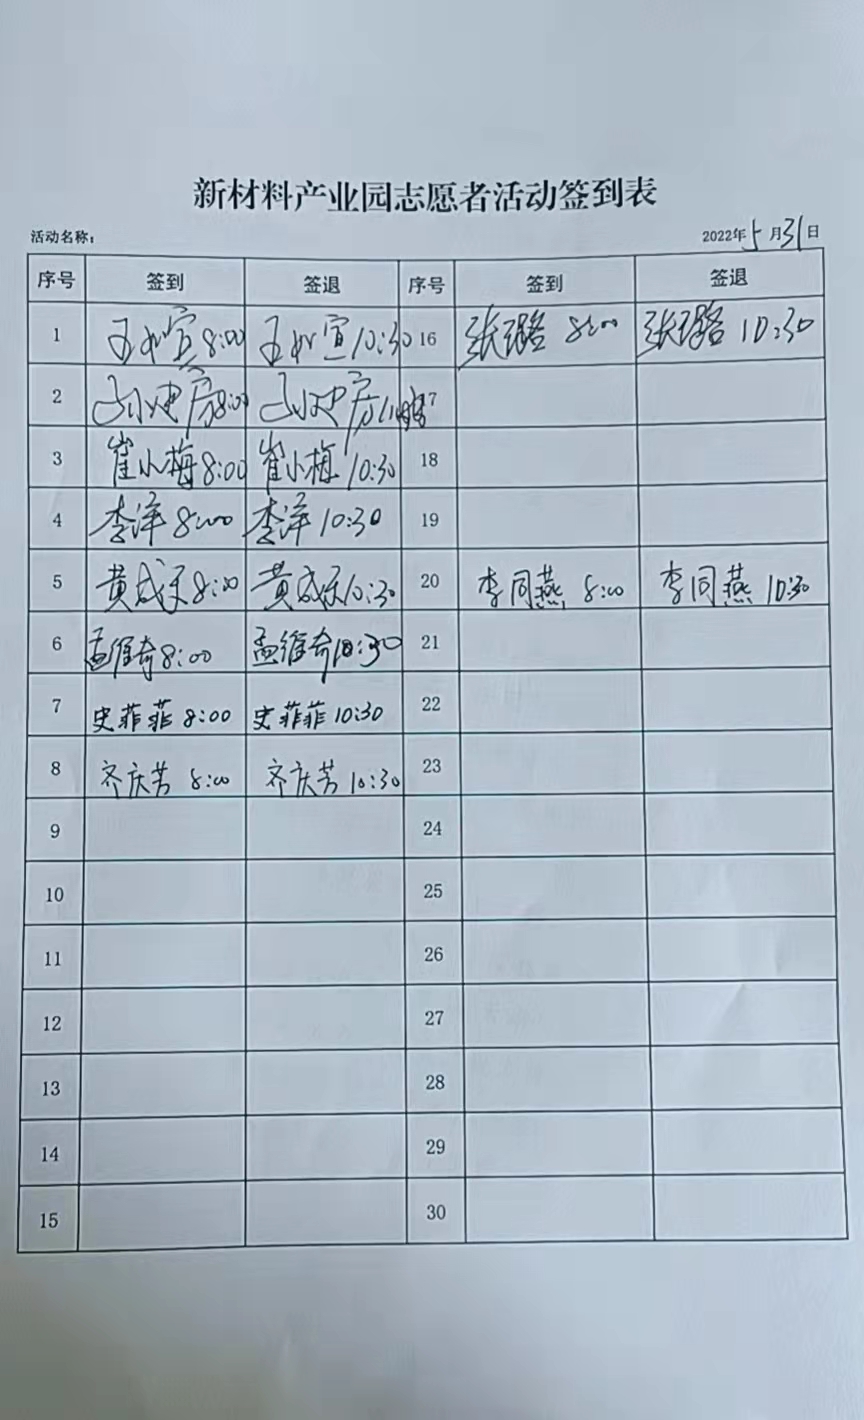 新材料产业园志愿者活动签到表
活动名称： 2022年5月31日
序号 签到 签退 序号 签到 签退
1 8:00 10:30 16 张璐 8:00 张璐 10:30
2 8:00 17
3 崔小梅 8:00 崔小梅 10:30 18
4 李洋 8:00 李洋 10:30 19
5 黄成 8:00 黄成 10:30 20 李同燕 8:00 李同燕 10:30
6 孟维奇 8:00 孟维奇 10:30 21
7 史菲菲 8:00 史菲菲 10:30 22
8 齐庆芳 8:00 齐庆芳 10:30 23
9 24
10 25
11 26
12 27
13 28
14 29
15 30